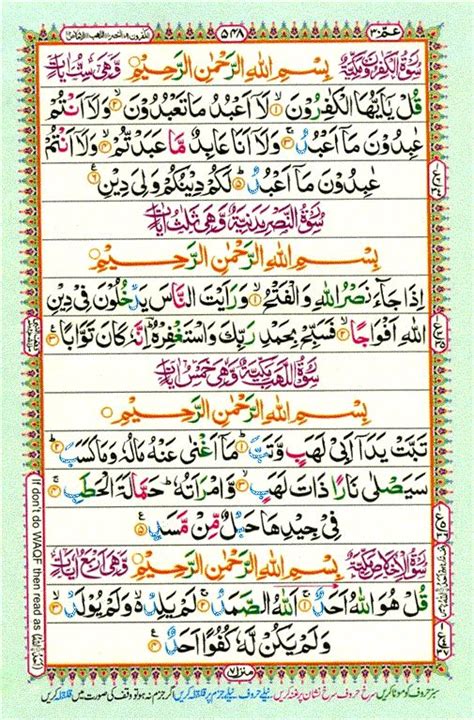 عمّ ٣٠
٥٤٨
سُوْرَةُ الْكٰفِرُوْنَ مَكِّيَّةٌ بِسْمِ اللهِ الرَّحْمٰنِ الرَّحِيْمِ وَّهِیَ سِتُّ اٰيَاتٍ
قُلْ يٰۤاَيُّهَا الْكٰفِرُوْنَ ۙ‏﴿۱﴾ لَاۤ اَعْبُدُ مَا تَعْبُدُوْنَ ۙ‏﴿۲﴾ وَلَاۤ اَنْتُمْ
عٰبِدُوْنَ مَاۤ اَعْبُدُ ۚ‏﴿۳﴾ وَلَاۤ اَنَا عَابِدٌ مَّا عَبَدْتُّمْ ۙ‏﴿۴﴾ وَلَاۤ اَنْتُمْ
عٰبِدُوْنَ مَاۤ اَعْبُدُ ؕ‏﴿۵﴾ لَكُمْ دِيْنُكُمْ وَلِىَ دِيْنِ ‏﴿۶﴾
سُوْرَةُ النَّصْرِ مَدَنِيَّةٌ وَّهِیَ ثَلٰثُ اٰيَاتٍ
بِسْمِ اللهِ الرَّحْمٰنِ الرَّحِيْمِ
اِذَا جَآءَ نَصْرُ اللهِ وَالْفَتْحُ ۙ‏﴿۱﴾ وَرَاَيْتَ النَّاسَ يَدْخُلُوْنَ فِىْ دِيْنِ
اللهِ اَفْوَاجًا ۙ‏﴿۲﴾ فَسَبِّحْ بِحَمْدِ رَبِّكَ وَاسْتَغْفِرْهُ ؔؕ اِنَّهٗ كَانَ تَوَّابًا ‏﴿۳﴾
سُوْرَةُ اللَّهَبِ مَكِّيَّةٌ وَّهِیَ خَمْسُ اٰيَاتٍ
بِسْمِ اللهِ الرَّحْمٰنِ الرَّحِيْمِ
تَبَّتْ يَدَاۤ اَبِىْ لَهَبٍ وَّتَبَّ ؕ‏﴿۱﴾ مَاۤ اَغْنٰى عَنْهُ مَالُهٗ وَمَا كَسَبَ ؕ‏﴿۲﴾
سَيَصْلٰى نَارًا ذَاتَ لَهَبٍ ۖۚ‏﴿۳﴾ وَّامْرَاَتُهٗ ؕ حَمَّالَةَ الْحَطَبِ ۚ‏﴿۴﴾
فِىْ جِيْدِهَا حَبْلٌ مِّنْ مَّسَدٍ ‏﴿۵﴾
سُوْرَةُ الْاِخْلَاصِ مَكِّيَّةٌ بِسْمِ اللهِ الرَّحْمٰنِ الرَّحِيْمِ وَّهِیَ اَرْبَعُ اٰيَاتٍ
قُلْ هُوَ اللهُ اَحَدٌ ۚ‏﴿۱﴾ اَللهُ الصَّمَدُ ۚ‏﴿۲﴾ لَمْ يَلِدْ ۙ وَلَمْ يُوْلَدْ ۙ‏﴿۳﴾
وَلَمْ يَكُنْ لَّهٗ كُفُوًا اَحَدٌ ‏﴿۴﴾
منزل ٧
سبز حروف کو موٹا کریں سرخ حروف سرخ نشان پر غنہ کریں نیلے حروف نیلے جزم پر قلقلہ کریں اگر جزم نہ ہو تو وقف کی صورت میں قلقلہ کریں
If don't do WAQF then read as